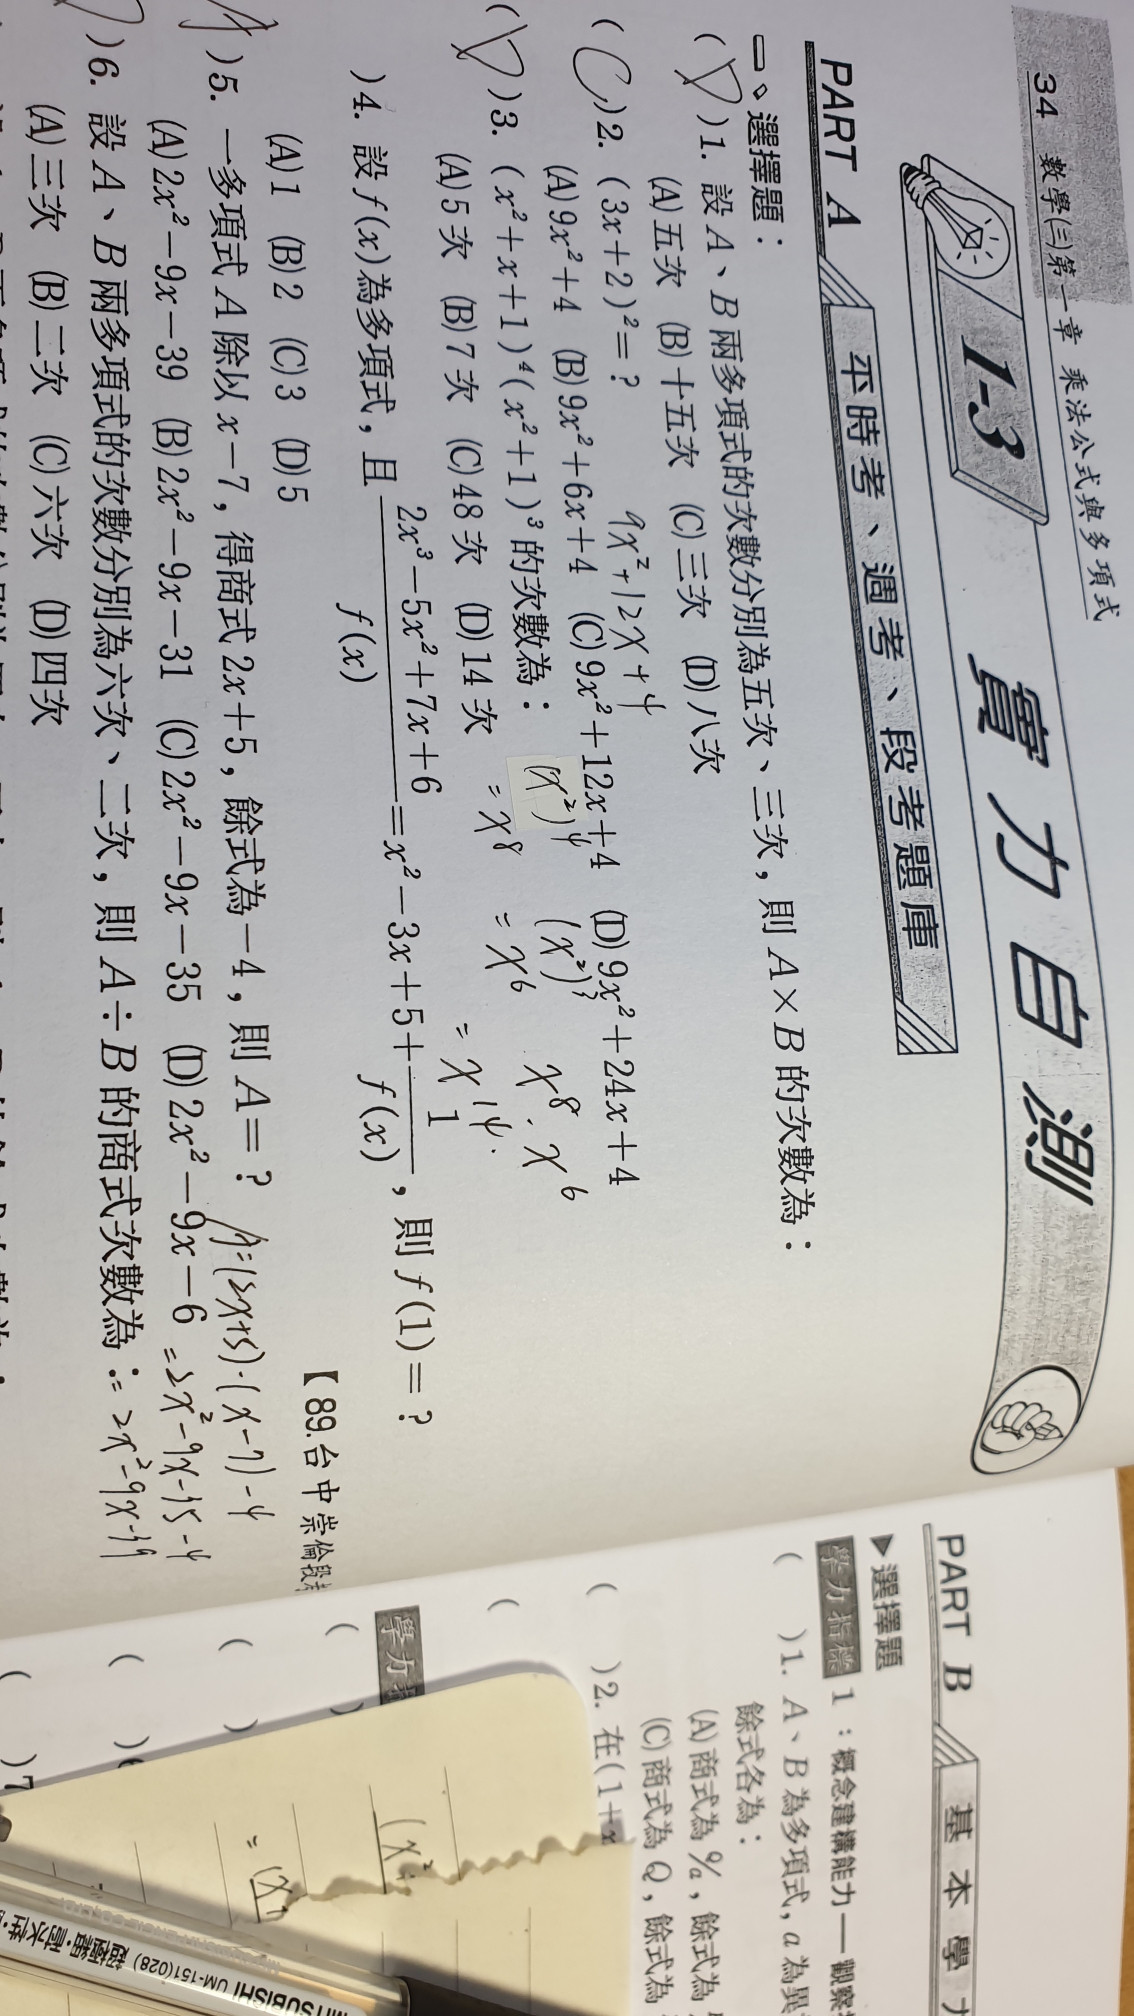 34 數學(三)第一章 乘法公式與多項式
1-3 實力自測
PART A 平時考、週考、段考題庫
一、選擇題：
(D)1. 設A、B兩多項式的次數分別為五次、三次，則A×B的次數為：
(A)五次 (B)十五次 (C)三次 (D)八次
(C)2. (3x+2)²=？
9x²+12x+4
(A)9x²+4 (B)9x²+6x+4 (C)9x²+12x+4 (D)9x²+24x+4
(D)3. (x²+x+1)⁴(x²+1)³的次數為：
(x²)⁴ (x²)³ x⁸·x⁶
(A)5次 (B)7次 (C)48次 (D)14次
=x⁸ =x⁶ =x¹⁴.
)4. 設f(x)為多項式，且 (2x³-5x²+7x+6)/f(x) = x²-3x+5+ 1/f(x)，則f(1)=？
(A)1 (B)2 (C)3 (D)5
【89.台中崇倫段考
A)5. 一多項式A除以x-7，得商式2x+5，餘式為-4，則A=？
A=(2x+5)·(x-7)-4
(A)2x²-9x-39 (B)2x²-9x-31 (C)2x²-9x-35 (D)2x²-9x-6
=2x²-9x-35-4
=2x²-9x-39
)6. 設A、B兩多項式的次數分別為六次、二次，則A÷B的商式次數為：
(A)三次 (B)二次 (C)六次 (D)四次
PART B 基本學
▶選擇題
學力指標 1：概念建構能力——觀察
( )1. A、B為多項式，a為異
餘式各為：
(A)商式為 Q/a，餘式為
(C)商式為Q，餘式為
( )2. 在(1+x
學力指
( )
( )
( )6
( )7
(x²+
MITSUBISHI UM-151(028) 超極細·耐水性·